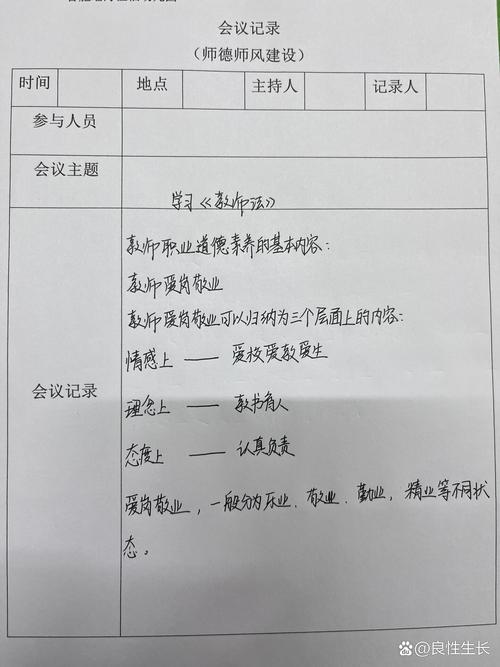 会议记录
(师德师风建设)
时间 地点 主持人 记录人
参与人员
会议主题
学习《教师法》
会议记录
教师职业道德素养的基本内容:
教师爱岗敬业
教师爱岗敬业可以归纳为三个层面上的内容:
情感上 —— 爱校爱教爱生
理念上 —— 教书育人
态度上 —— 认真负责
爱岗敬业,一般分为乐业、敬业、勤业,精业等不同状
态。
百家号@良性生长